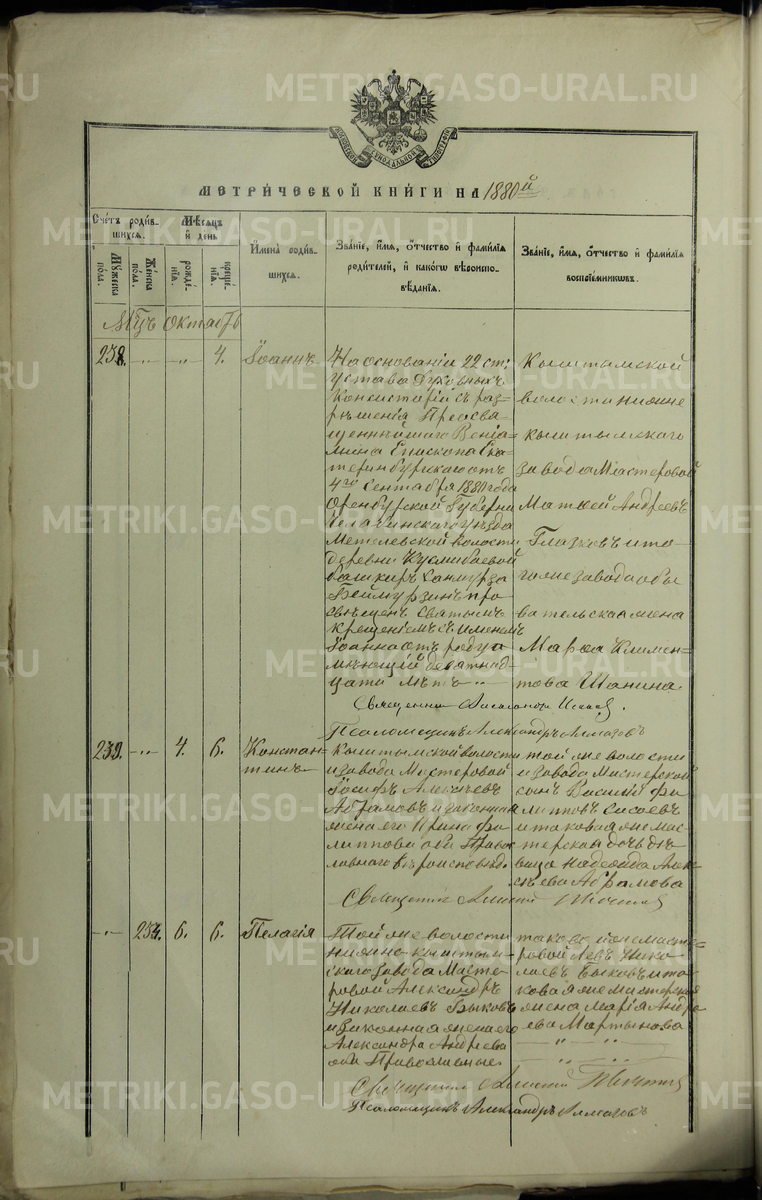 METRIKI.GASO-URAL.RU
МЕТРИ́ЧЕСКОЙ КНИ́ГИ НА 1880й
Сче́тъ роди́в-
шихся.
Му́жеска
по́ла.
Же́нска
по́ла.
Мѣ́сяцъ
и́ день
рожде́-
нія.
креще́-
нія.
И҆мена̀ роди́в-
шихся.
Зва́ніе, и҆́мя, ѻ҆́тчество и҆ фами́лія
роди́телей, и҆ како́гѡ вѣ̀роиспо-
вѣ́данія.
Зва́ніе, и҆́мя, ѻ҆́тчество и҆ фами́лія
воспріе́мниковъ.
Мцъ Октябрь
238. -"- -"- 4. Іоаннъ
На основаніи 22 ст:
устава Духовныхъ
Консисторій съ раз-
рѣшенія Преосвя-
щеннѣйшаго Веніа-
мина Епископа Ека-
теринбургскаго отъ
4го Сентября 1880 года
Оренбургской Губерніи
Челябинскаго уѣзда
Метелевской волости
деревни
башкиръ
Беймурзинъ про-
свѣщенъ Святымъ
Крещеніемъ съ именемъ
Іоанна отъ роду и-
мѣющій девятнад-
цати лѣтъ -"-
Кыштымской
волости нижне
кыштымскаго
завода Мастеровой
Матѳей Андреевъ
Глазковъ и то-
гоже завода обы
вательская жена
Марѳа Климен-
това Шанина.
Священникъ
Псаломщикъ Александръ Алмазовъ
239. -"- 4. 6. Констан-
тинъ
Кыштымской волости
и завода Мастеровой
Іосифъ Алексѣевъ
Абрамовъ и законная
жена его Ирина Фи
липпова оба Право
славнаго вѣроисповѣд.
той же волости
и завода Мастерской
сынъ Василій Фи
липповъ Сысоевъ
и таковая же мас
терская дочь дѣ-
вица Надежда Алек
сѣева Абрамова
Священникъ Алексій
-"- 234. 6. 6. Пелагія
Той же волости
нижне-кыштым-
скаго завода Масте-
ровой Александръ
Николаевъ Быковъ
и законная жена его
Александра Андреева
оба Православные
таковой же масте-
ровой Левъ Нико
лаевъ Быковъ и та-
ковая же Мастерская
жена Марія Андре
ева Мартынова
Священникъ Алексій
Псаломщикъ Александръ Алмазовъ